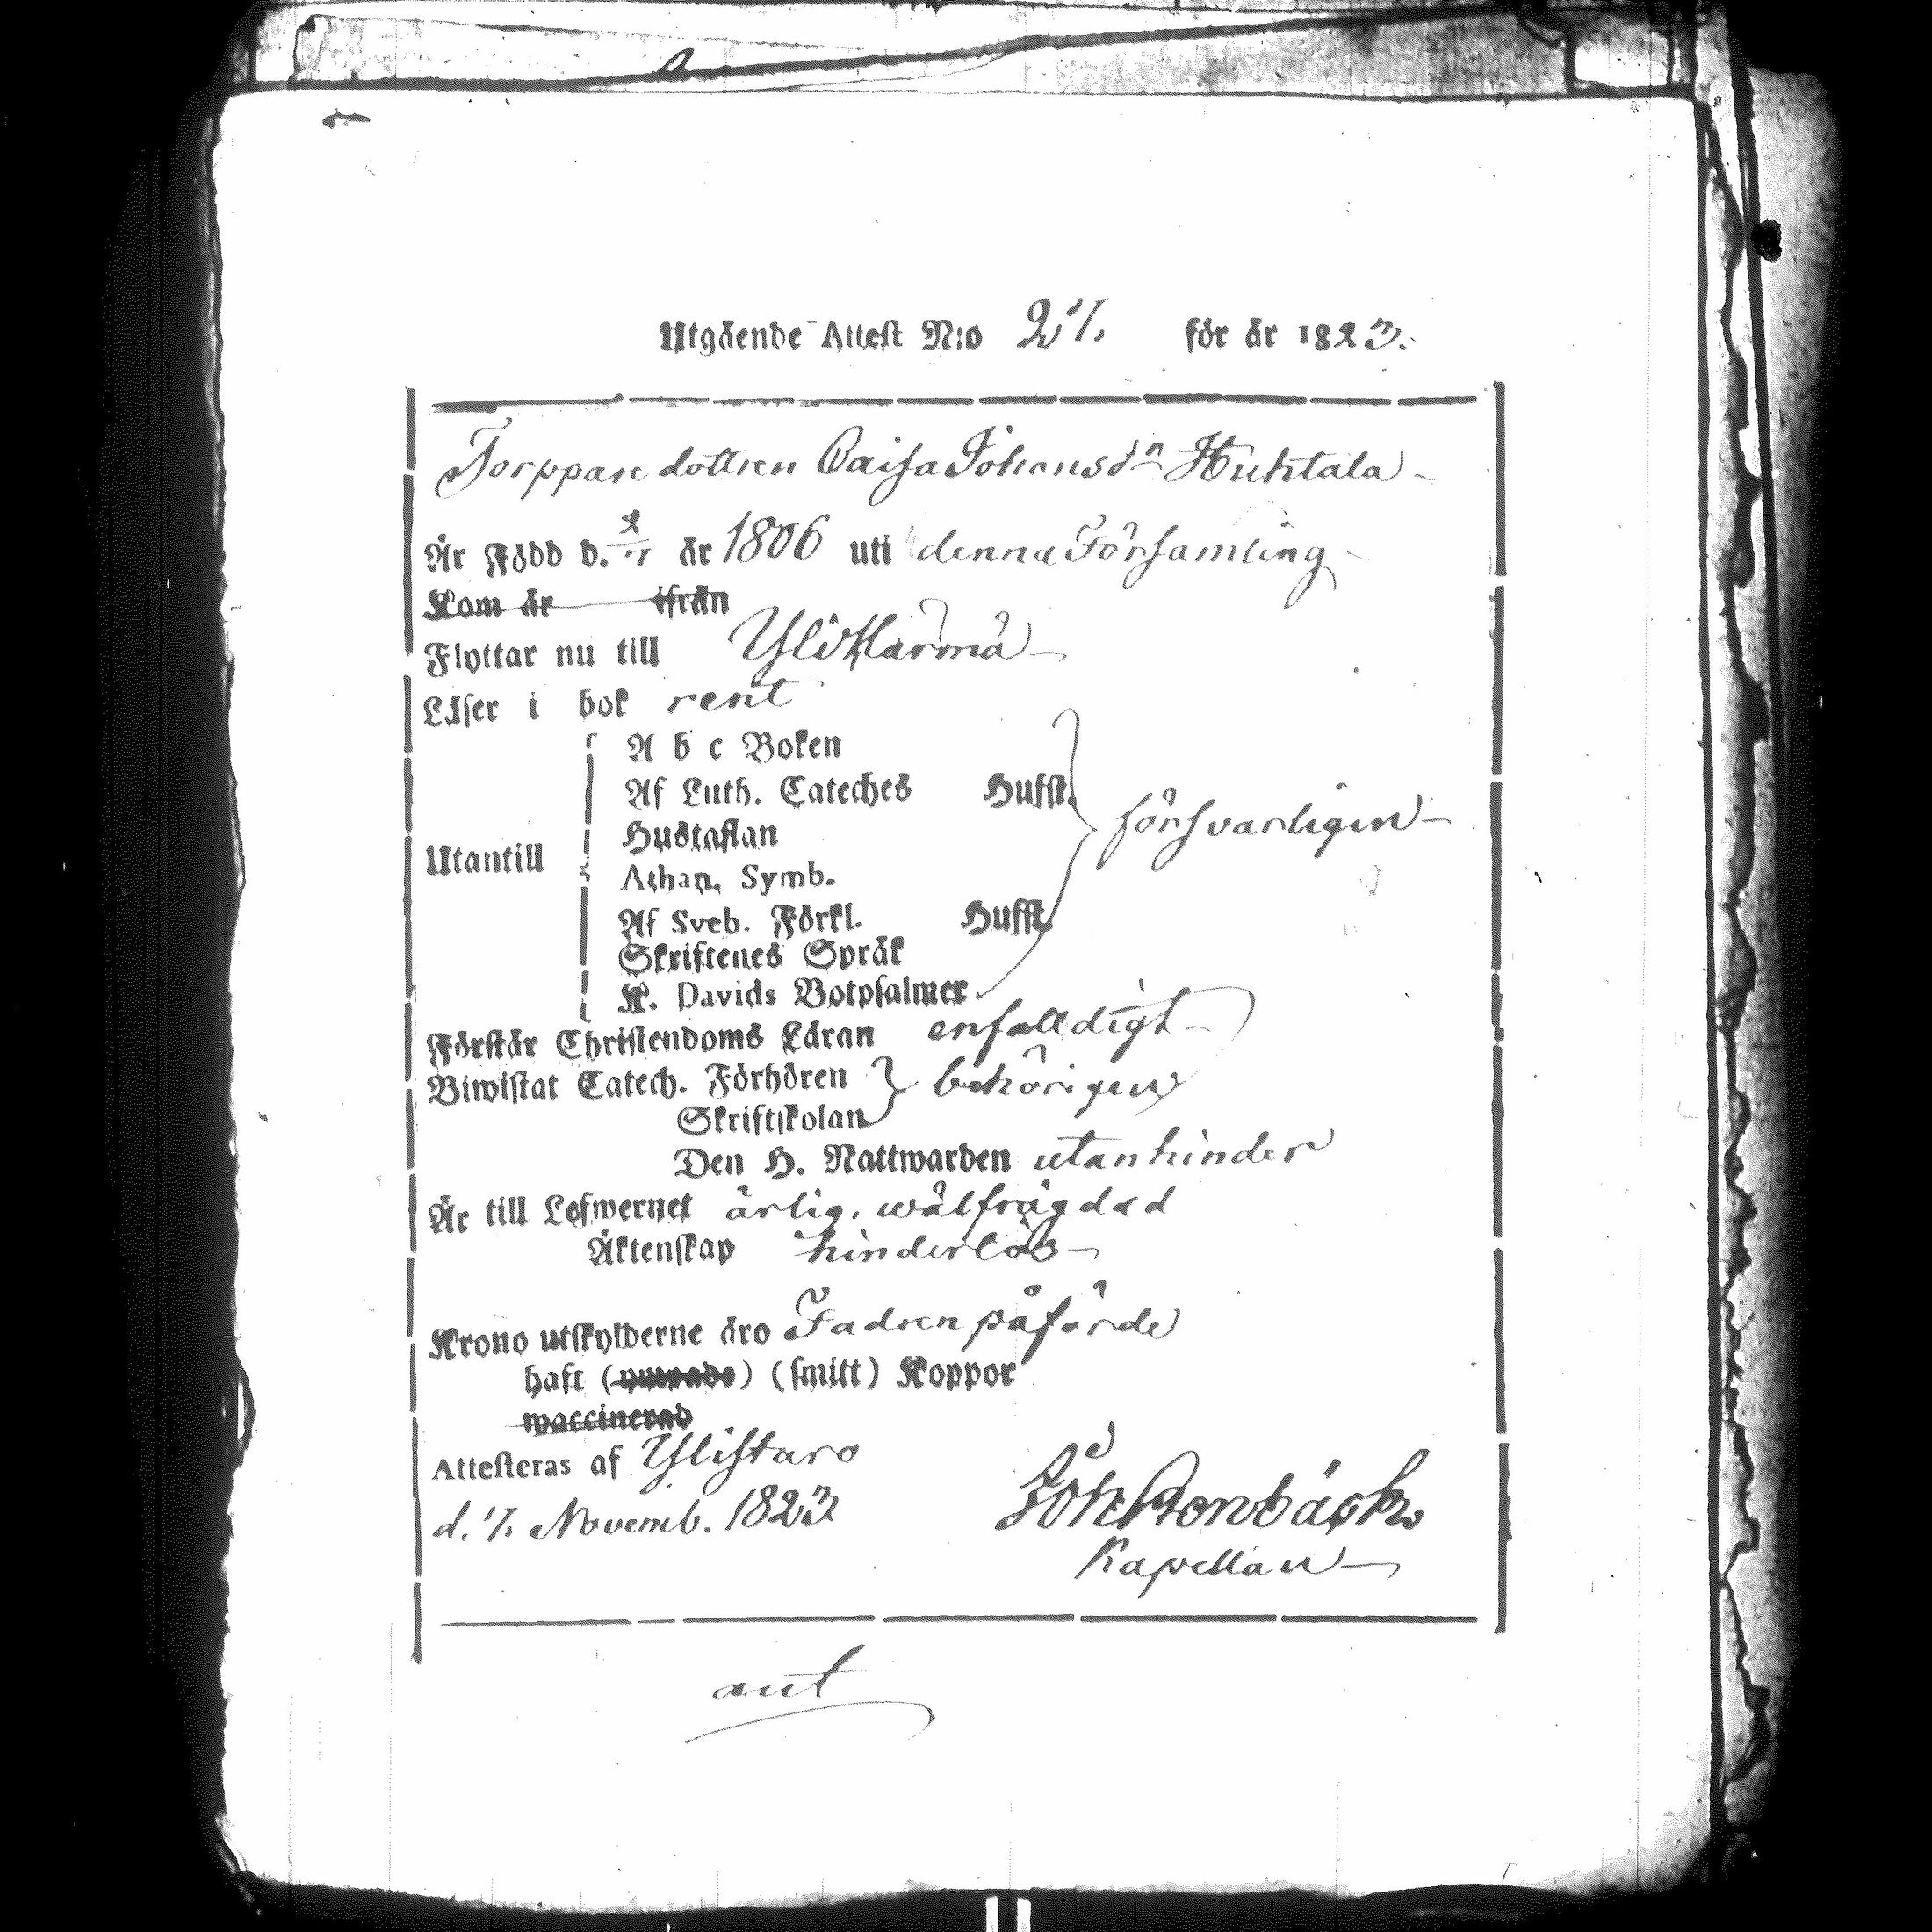 Utgående Attest N:o 27. för år 1823.
Torppare dottren Caisa Johansdn Huhtala
Är Född d. 2/7 år 1806 uti denna Församling
Kom år ifrån
Flyttar nu till YliHärmä
Läser i bok rent
A b c Boken
Af Luth. Cateches Hufst.
Hustaflan
Utantill
försvarligen
Athan. Symb.
Af Sveb. Förkl. Hufst.
Skriftenes Språk
K. Davids Botpsalmer
Förstår Christendoms Läran enfalldigt
Biwistat Catech. Förhören behörigen
Skriftskolan
Den H. Nattwarden utan hinder
Är till Lefwernet ärlig, wälfrägdad
Äktenskap hinderlös
Krono utskylderne äro Fadren påförde
haft (ympade) (smitt) Koppor
waccinerad
Attesteras af Ylistaro
d. 7. Novemb. 1823
Joh Cronbäck
Kapellan
ant